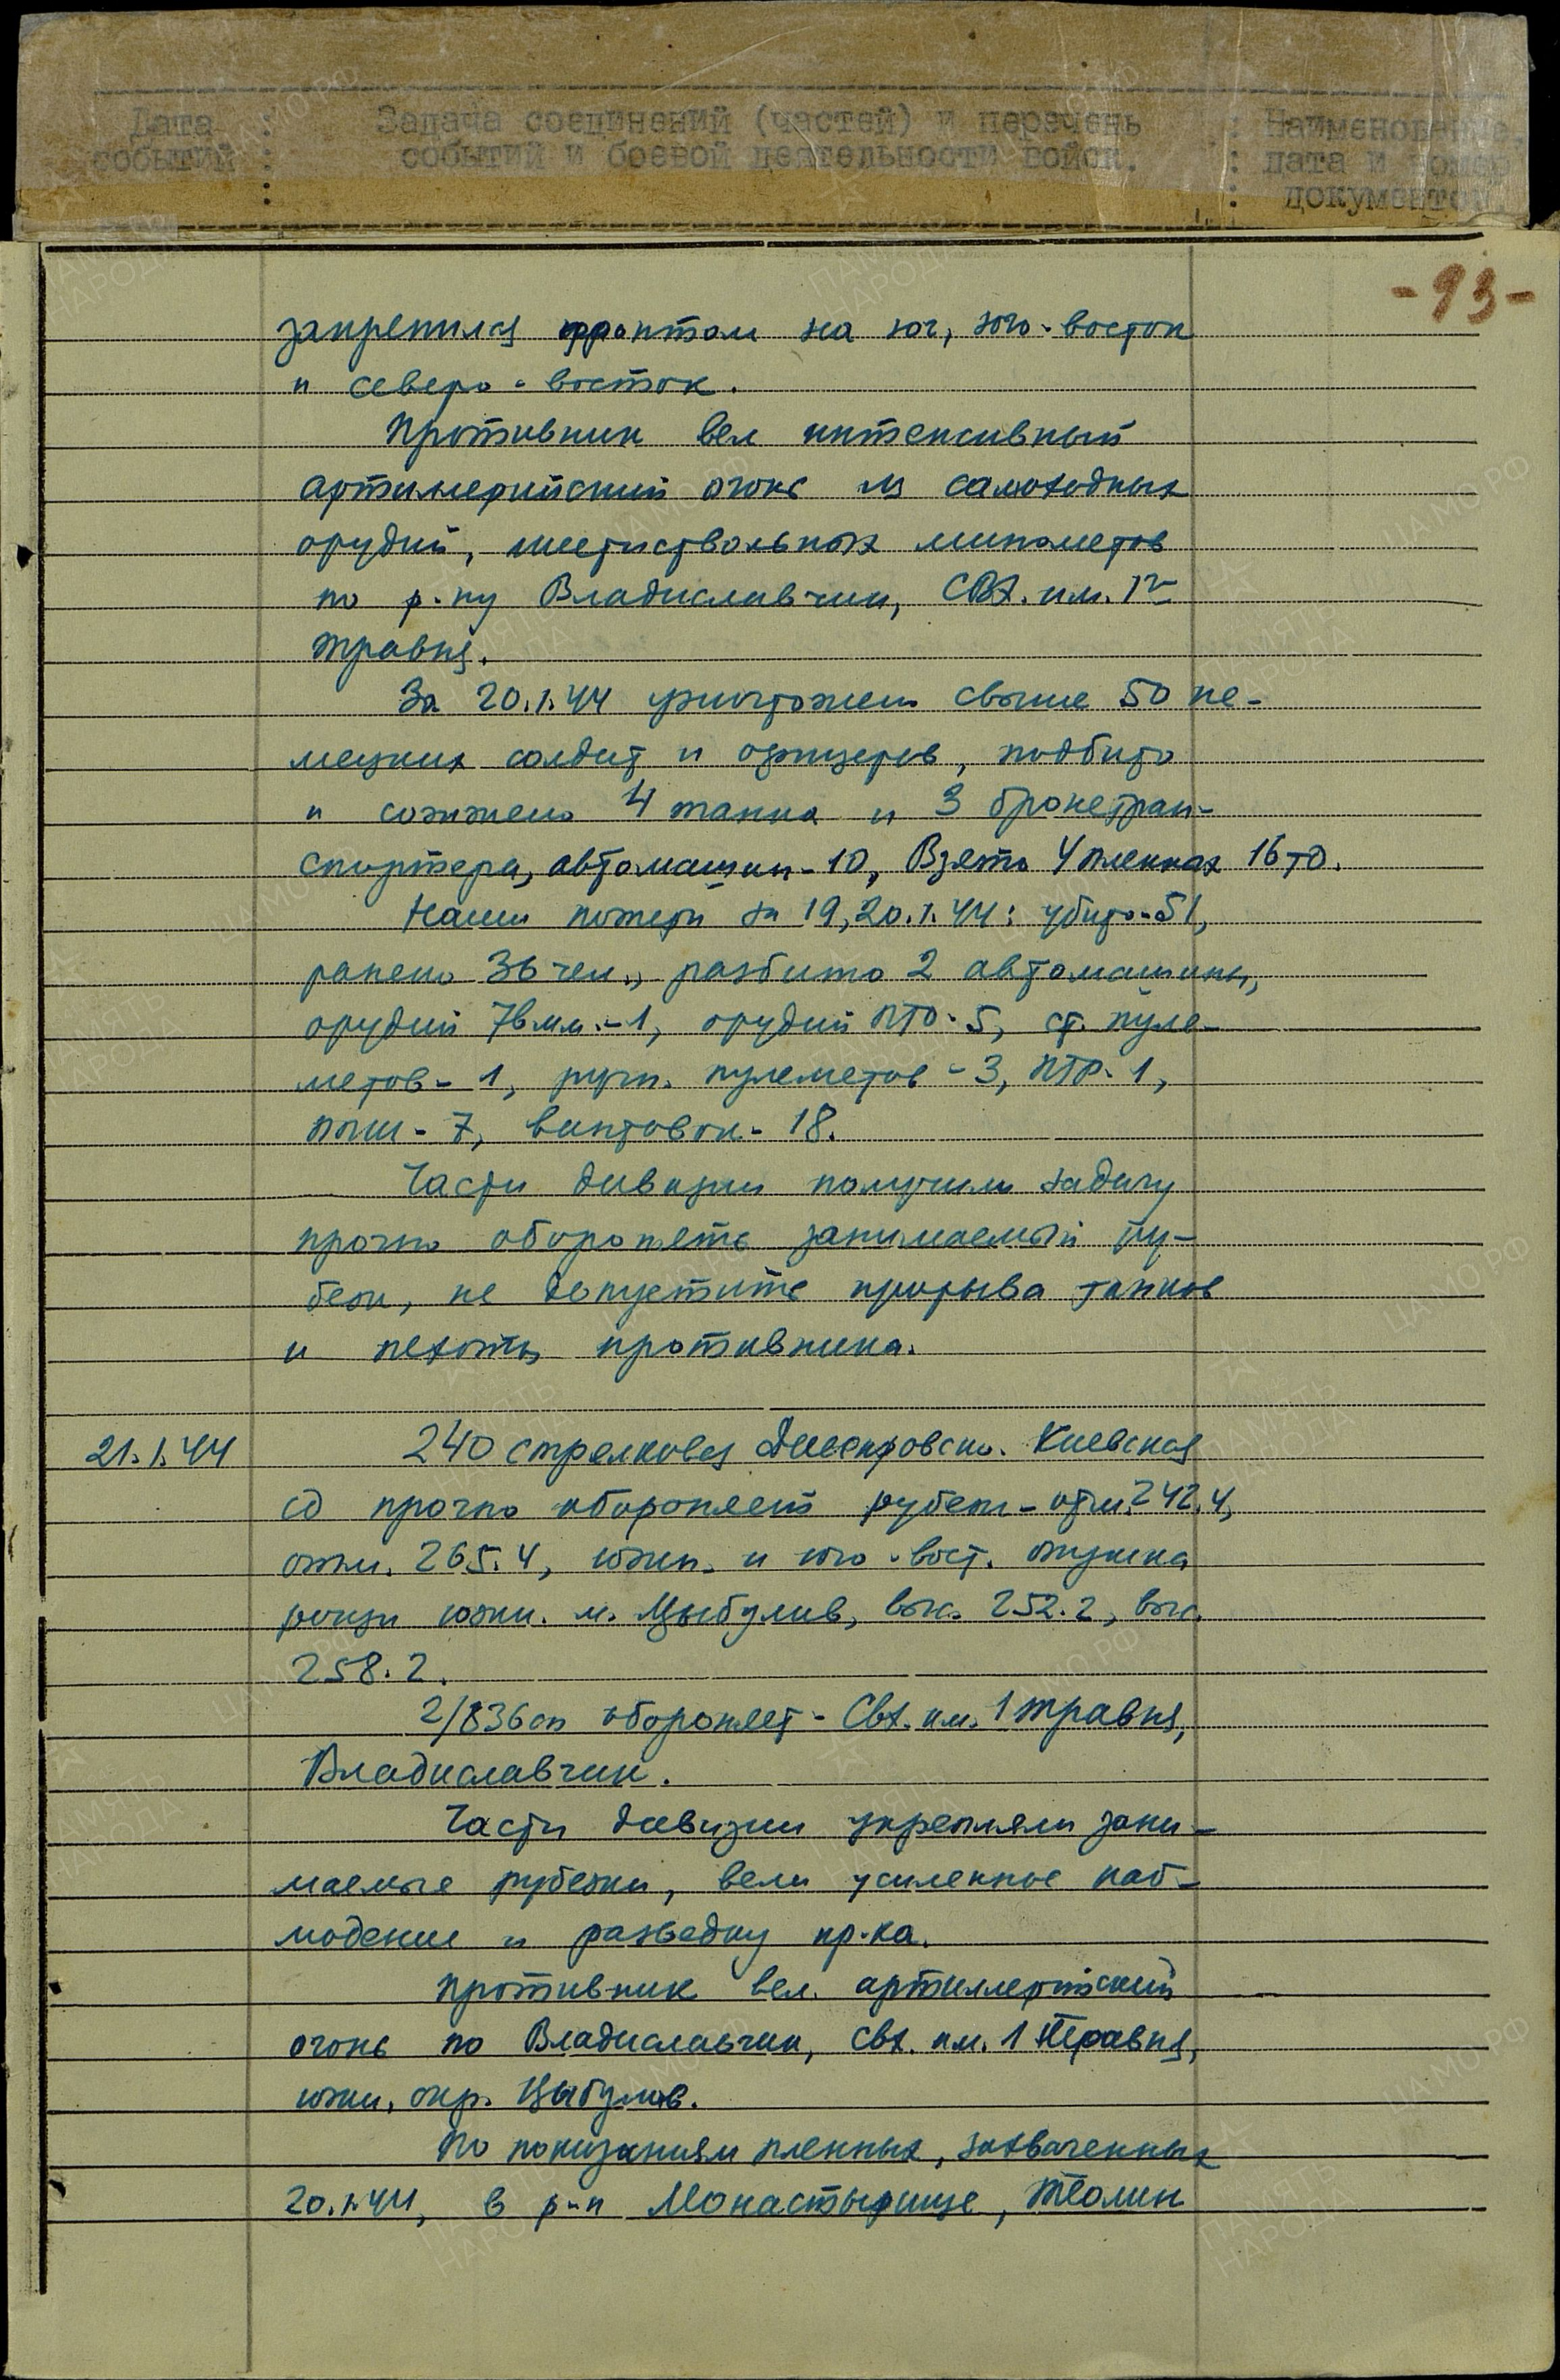 Дата : Задача соединений (частей) и перечень : Наименование,
событий : событий и боевой деятельности войск. : дата и номер
: : документов.
-93-
закрепился фронтом на юг, юго-восток
и северо-восток.
Противник вел интенсивный
артиллерийский огонь из самоходных
орудий, шестиствольных минометов
по р-ну Владиславчик, СВХ. им. 1го
травня.
За 20.1.44 уничтожено свыше 50 не-
мецких солдат и офицеров, подбито
и сожжено 4 танка и 3 бронетран-
спортера, автомашин-10, Взято 4 пленных 16 тд.
Наши потери за 19,20.1.44: убито-51,
ранено 36 чел., разбито 2 автомашины,
орудий 76 мм.-1, орудий ПТО-5, ст. пуле-
метов-1, ручн. пулеметов-3, ПТР-1,
ппш-7, винтовок-18.
Части дивизии получили задачу
прочно оборонять занимаемый ру-
беж, не допустить прорыва танков
и пехоты противника.
21.1.44 240 стрелковая Днепровско-Киевская
сд прочно обороняет рубеж-отм. 242.4,
отм. 265.4, южн. и юго-вост. опушка
рощи южн. м. Цыбулив, выс. 252.2, выс.
258.2.
2/836 сп обороняет-Свх. им. 1 травня,
Владиславчик.
Части дивизии укрепляли зани-
маемые рубежи, вели усиленное наб-
людение и разведку пр-ка.
Противник вел артиллерийский
огонь по Владиславчик, свх. им. 1 Травня,
южн. окр. Цыбулив.
По показаниям пленных, захваченных
20.1.44, в р-н Монастырище, Теолин